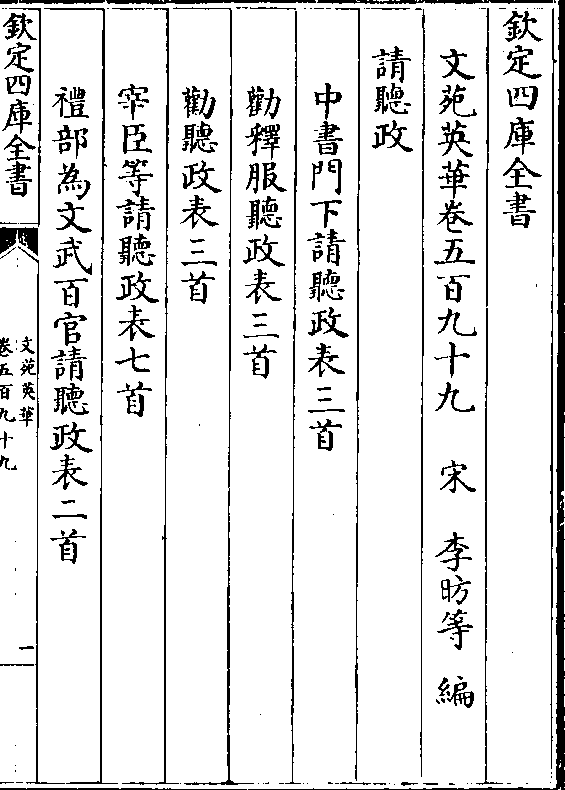 欽定四庫全書
文苑英華卷五百九十九 宋 李昉等 編
請聽政
中書門下請聽政表三首
勸釋服聽政表三首
勸聽政表三首
宰臣等請聽政表七首
禮部為文武百官請聽政表二首
欽定四庫全書
文苑英華
卷五百九十九
一